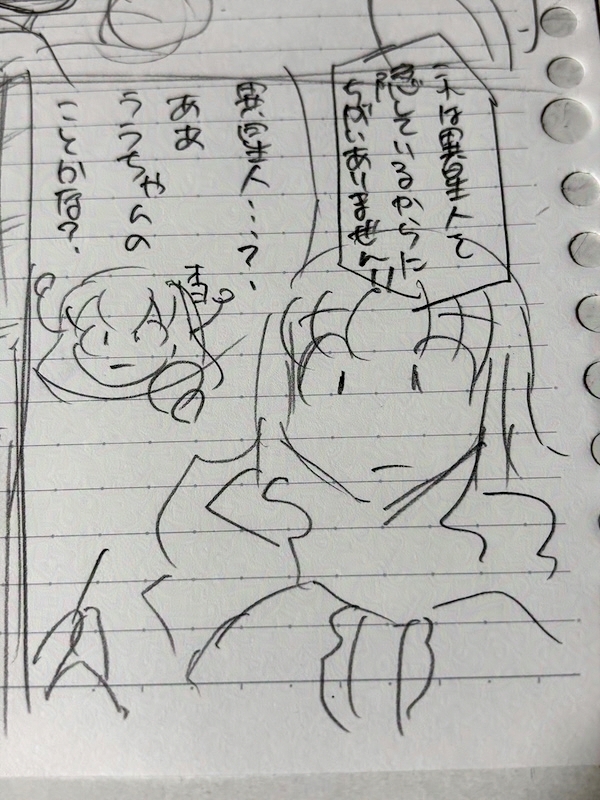 は異星人を
隠しているからに
ちがいありません!!
異星人…?
ああ
ううちゃんの
ことかな?